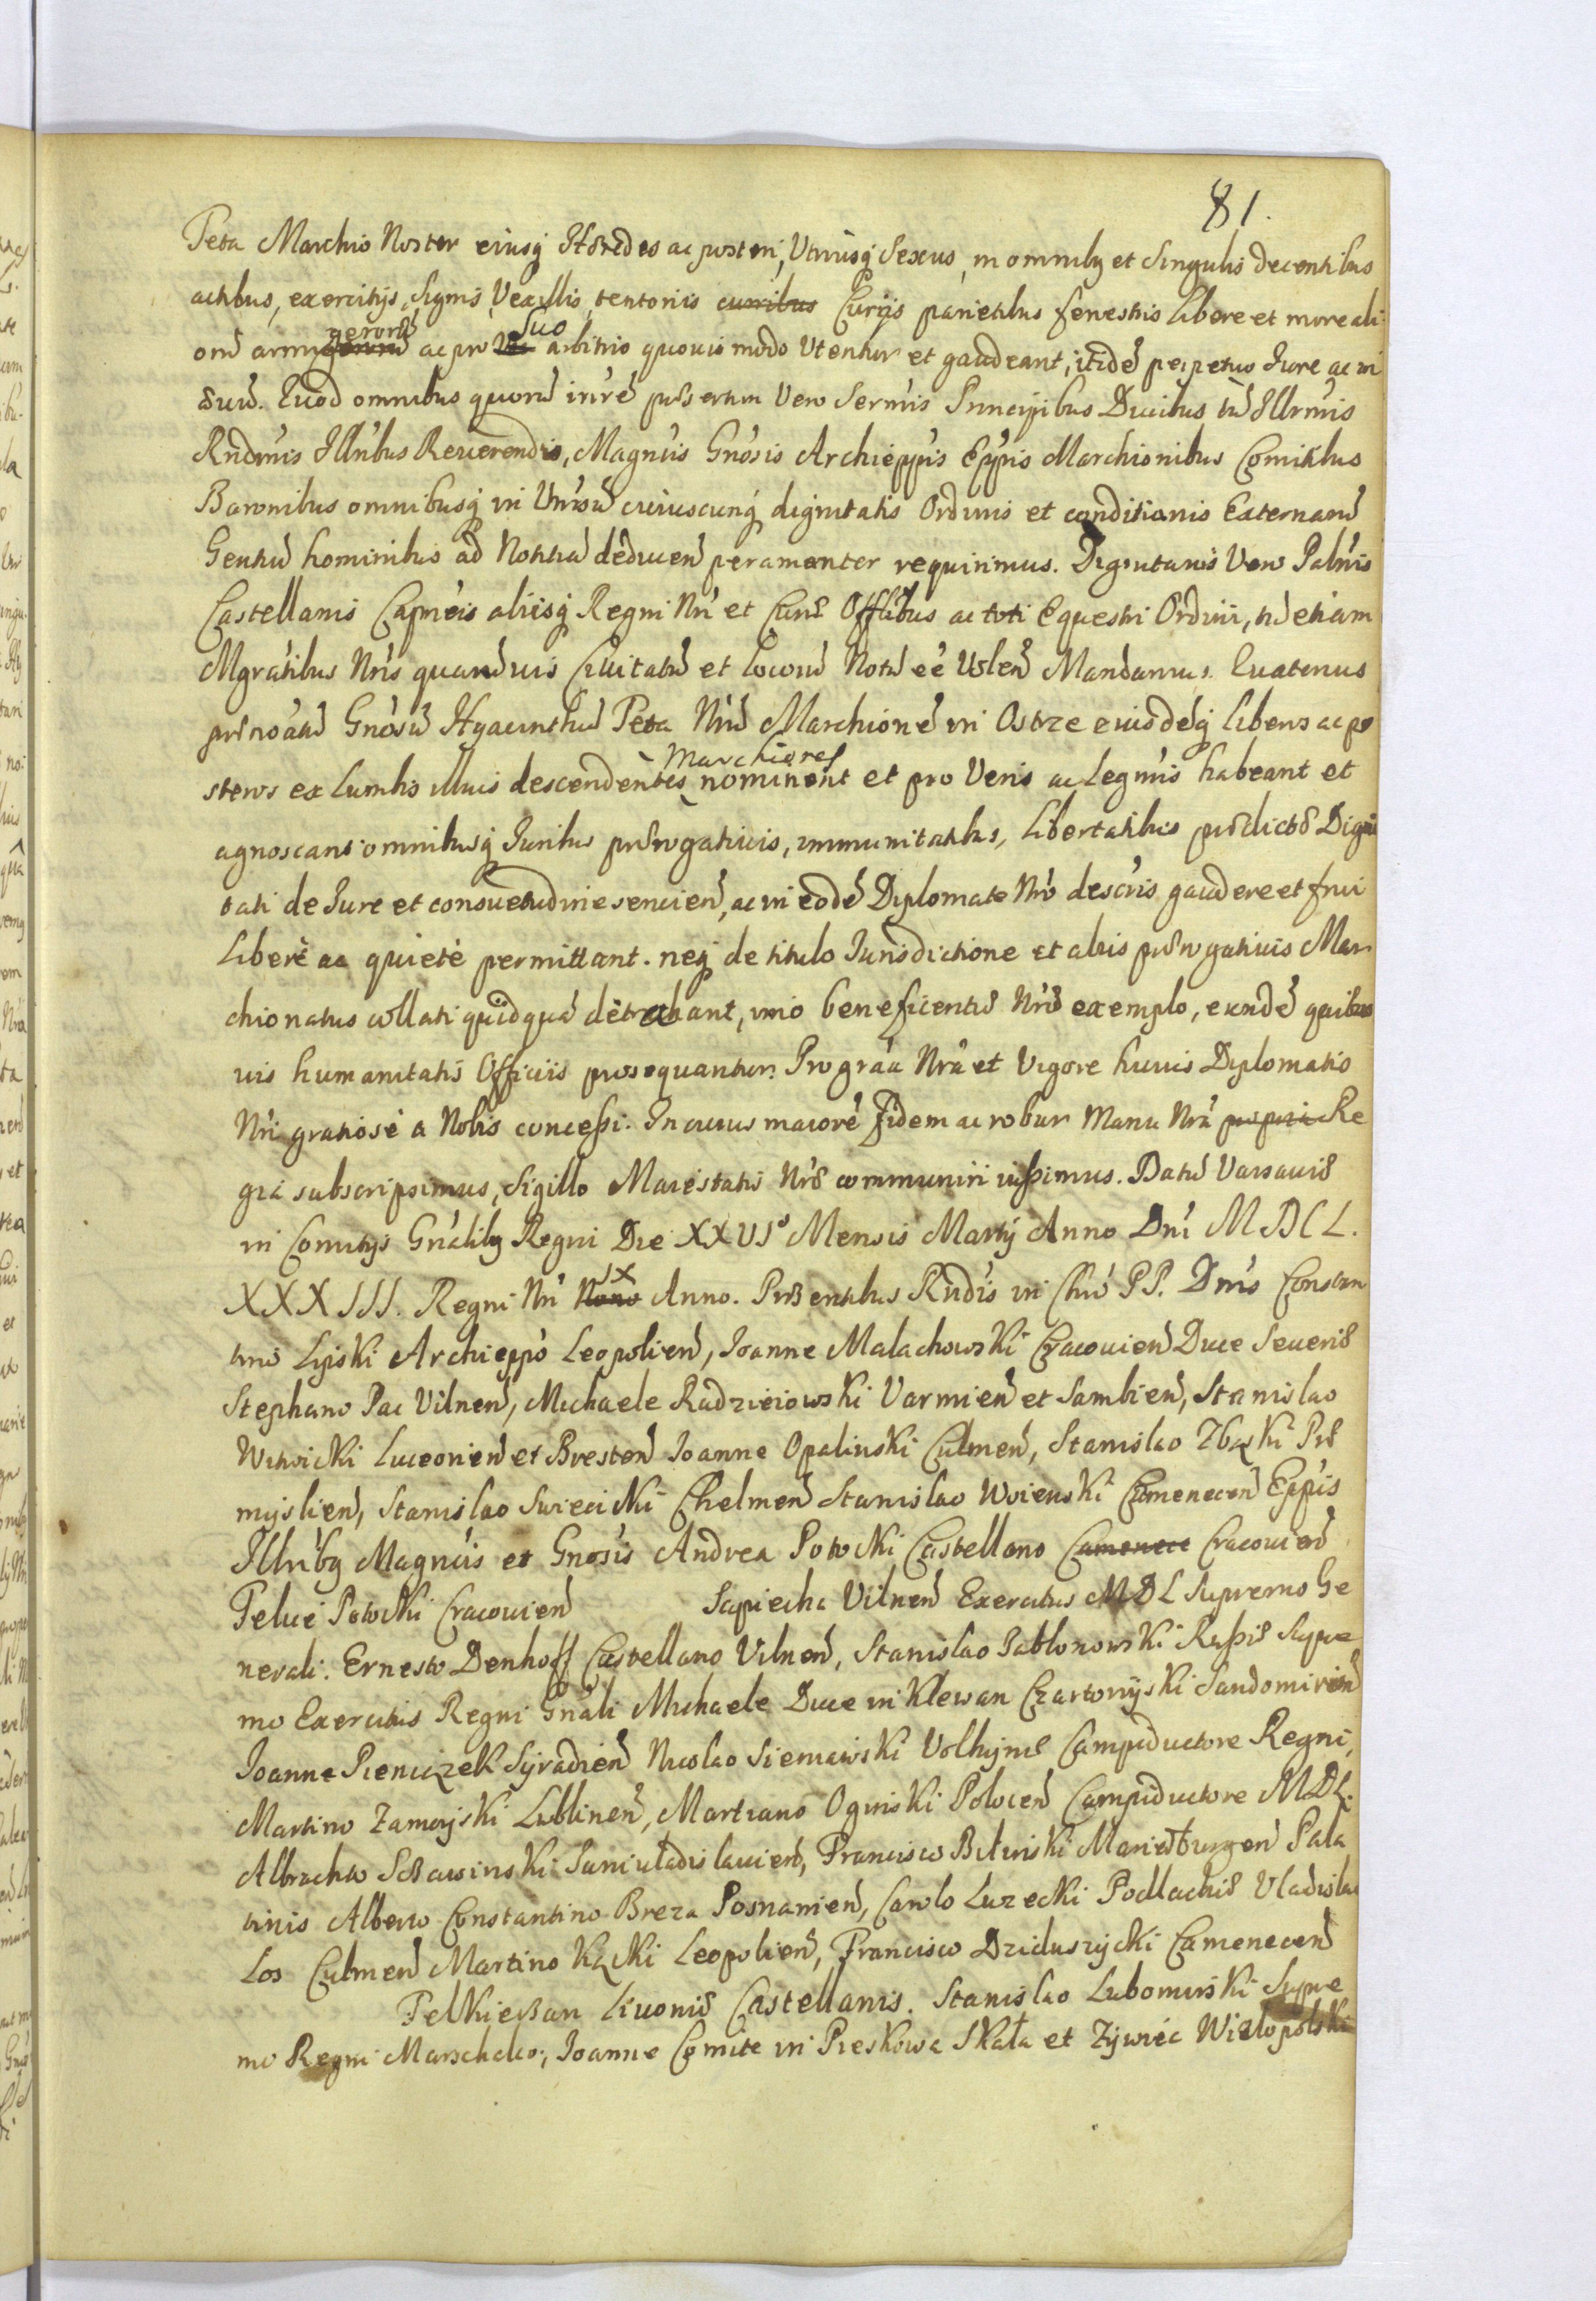 81.
Peta Marchio Noster eiusq Hæredes ac posteri, Utriusq Sexus, in omnibq et Singulis decentibus
actibus, exercitijs, Signis, Vexillis, tentoriis curribus Curijs parietibus fenestris Libere et more ali
orũ armigerorũ ac pro suo arbitrio quovis modo Utentur et gaudeant, itidẽ perpetuo Jure ac in
æuũ. Quod omnibus quorũ intẽ præsertim Vero Sermis Principibus Ducibus tũ Illrmis
Rndmis Illribus Reuerendis, Magncis Gnosis Archieppis Eppis Marchionibus Comitibus
Baronibus omnibusq in Unrsũ cuiuscunq dignitatis Ordinis et conditionis Externarũ
Gentiũ hominibus ad Notitiã deducen peramanter requirimus. Dignitarijs Vero Palnis
Castellanis Capneis aliisq Regni Nri et Curiæ Offlibus ac toti Equestri Ordini, tũ etiam
Mgratibus Nris quarumuis Ciuitatũ et Locorũ Notũ eẽ Volen Mandamus. Quatenus
prænoatũ Gnosũ Hyacinthũ Peta Nrũ Marchionẽ in Ostrze eiusdẽq Liberos ac po
Marchiones
steros ex Lumbis illius descendentes nominent et pro Veris ac Legmis habeant et
agnoscant omnibusq Juribus prærogatiuis, immunitatibus, Libertatibus prædictæ Digni
tati de Jure et consuetudine seruien, ac in eodẽ Diplomate Nro descris gaudere et frui
Liberè ac quietè permittant. neq de titulo Jurisdictione et aliis prærogatiuis Mar
chionatus collati quidquã detrahant, imo beneficentiæ Nræ exemplo, eundẽ quibus
uis humanitatis Officiis prosequantur. Pro graa Nra et Vigore huius Diplomatis
Nri gratiosè a Nobis concessi. In cuius maiorẽ fidem ac robur Manu Nra propria Re
gia subscripsimus, Sigillo Maiestatis Nræ communiri iussimus. Datũ Varsauiæ
in Comitijs Gnalibq Regni Die XXVIº Mensis Martij Anno Dni MDCL.
XXXIII. Regni Nri Nono IX Anno. Præsentibus Rndis in Chro PP. Dnis Constan
tino Lipski Archieppo Leopolien, Joanne Malachowski Cracouien Duce Seueriæ
Stephano Pac Vilnen, Michaele Radzieiowski Varmien et Sambien, Stanislao
Witwicki Luceorien et Bresten Joanne Opalinski Culmen, Stanislao Zbąski Præ
myslien, Stanislao Swiecicki Chelmen Stanislao Woienski Camenecen Eppis
Illribq Magncis et Gnosis Andrea Potocki Castellano Camenece Cracouien
Felice Potocki Cracouien Sapiecha Vilnen Exercitus MDL Supremo Ge
nerali. Ernesto Denhoff Castellano Vilnen, Stanislao Jablonowski Russiæ Supre
mo Exercitus Regni Gnali Michaele Duce in Klewan Czartoryski Sandomirien
Joanne Pieniążek Syradien Nicolao Sieniawski Volhyniæ Campiductore Regni,
Martino Zamoyski Lublinen, Martiano Oginski Polocen Campiductore MDL.
Albrachto Sczawinski Juniuladislauien, Francisco Bilinski Marieburgen Pala
tinis Alberto Constantino Breza Posnanien, Carolo Luzecki Podlachiæ Vladislao
Los Culmen Martino Kącki Leopolien, Francisco Dzieduszycki Camenecen
Felkierzan Liuoniæ Castellanis. Stanislao Lubomirski Supre
mo Regni Marschalco, Joanne Comite in Pieskowa Skała et Zywiec Wielopolski